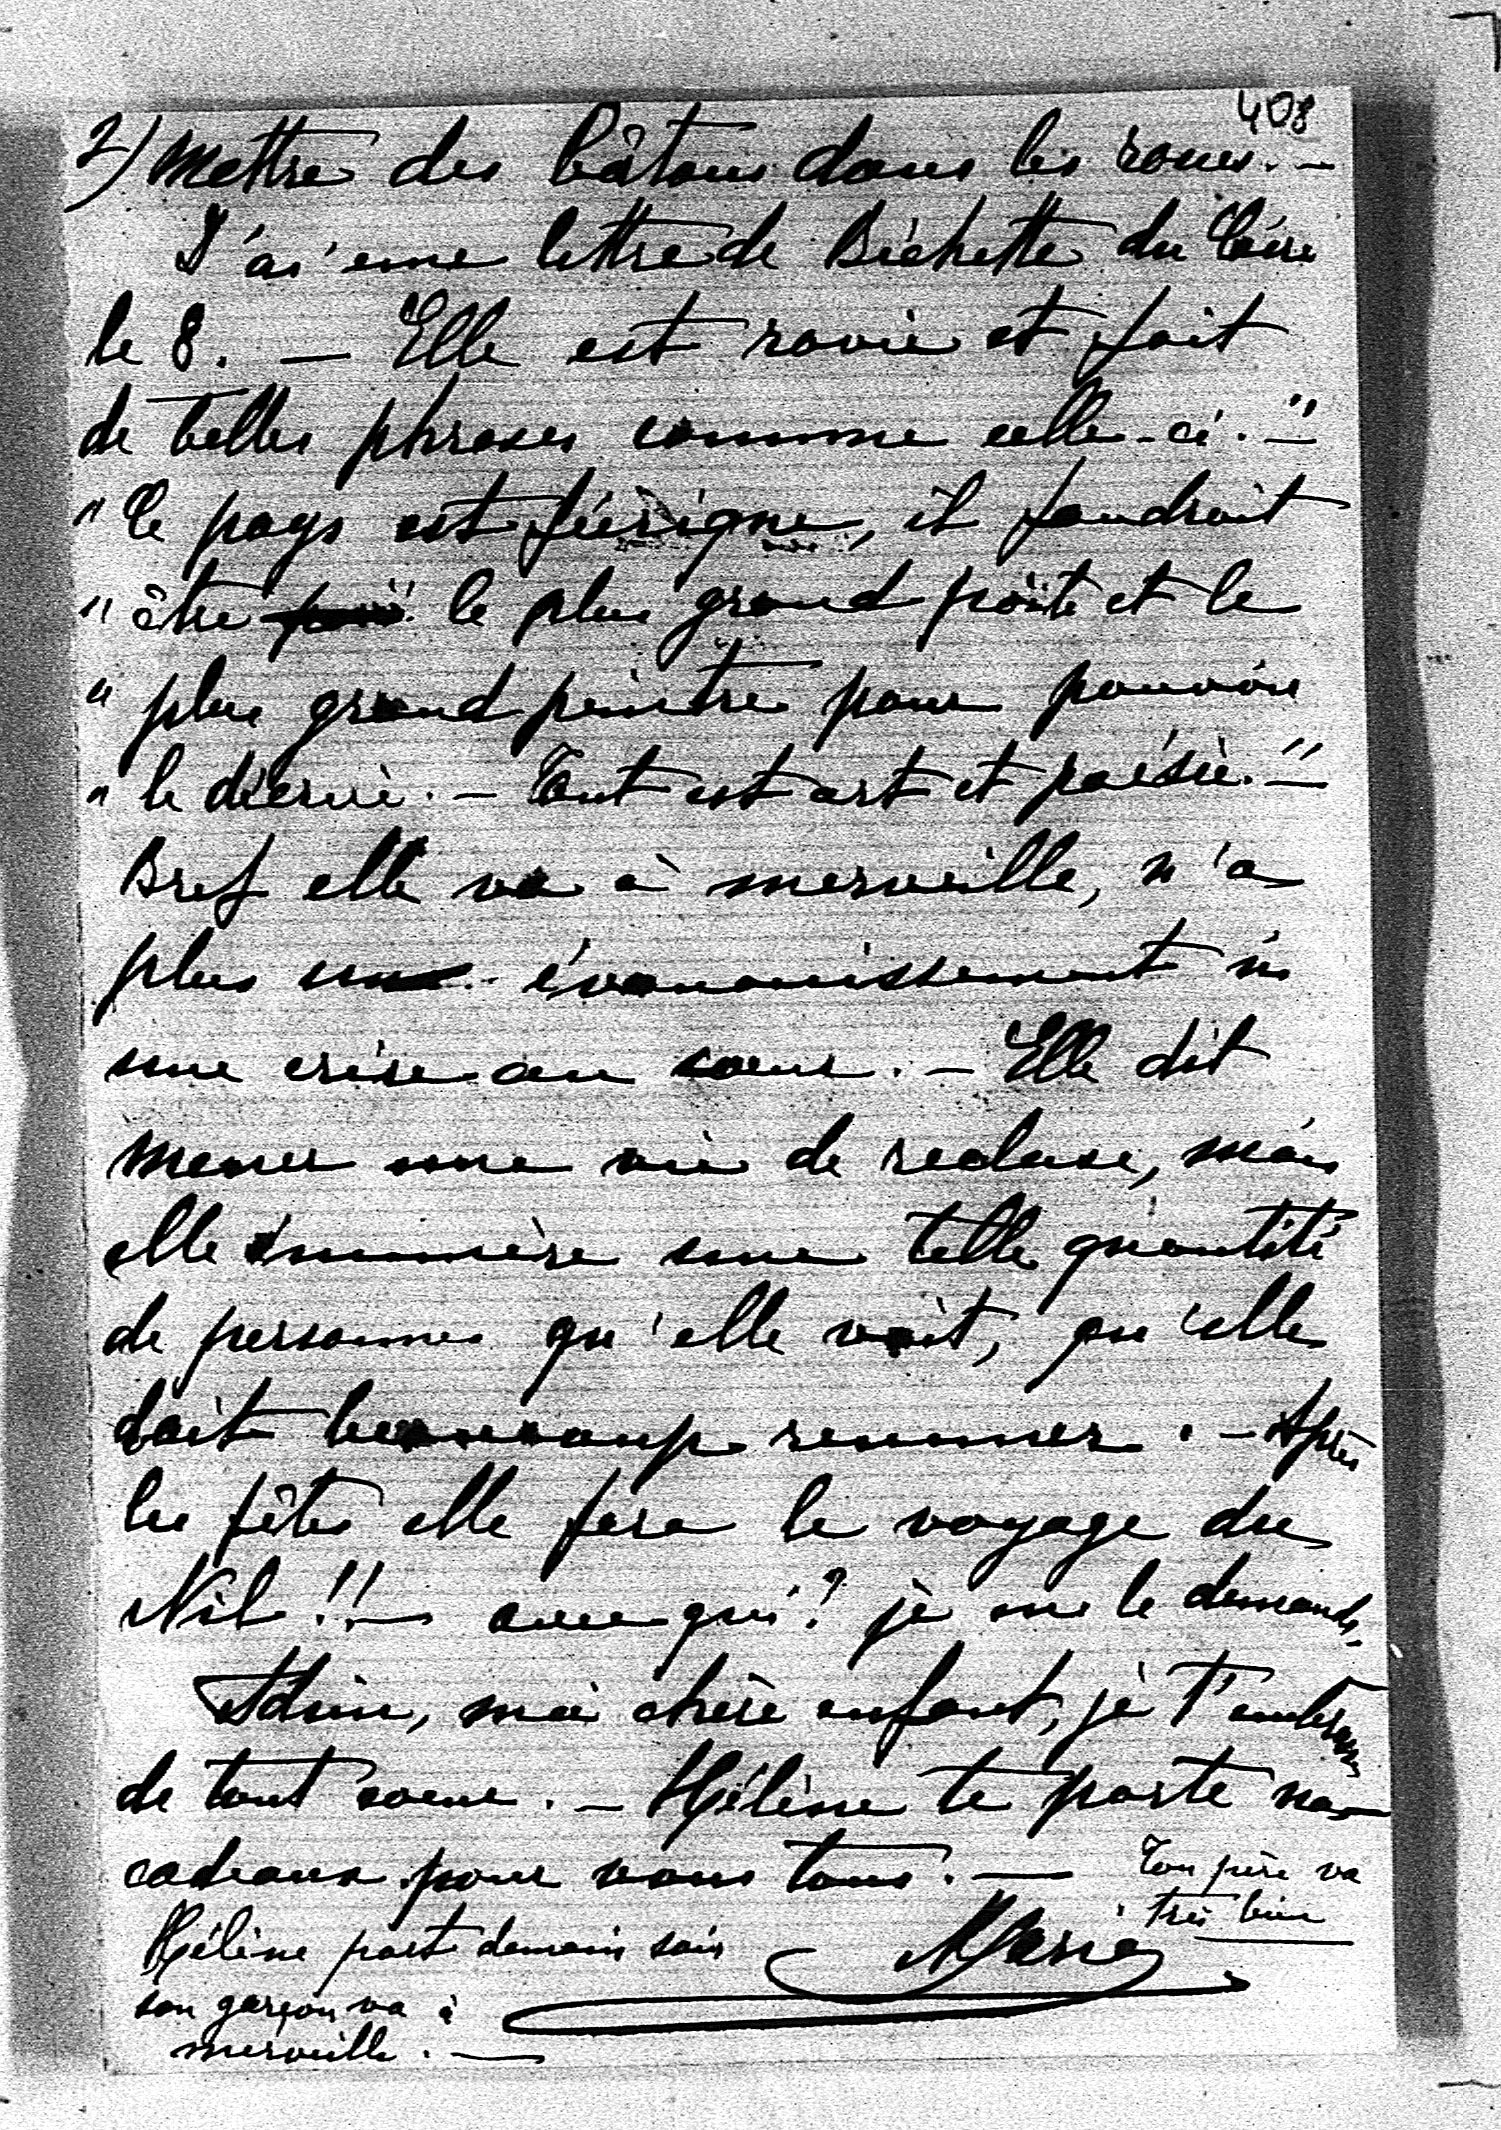 408
2) Mettre des bâtons dans les roues. —
J'ai une lettre de Béchette du Caire
le 8. — Elle est ravie et fait
de belles phrases comme celle-ci. — "
" Ce pays est féerique, il faudrait
" être le plus grand poëte et le
" plus grand peintre pour pouvoir
" le décrire. — Tout est art et poésie. — "
Bref elle va à merveille, n'a
plus un évanouissement ni
une crise au coeur. — Elle dit
mener une vie de recluse, mais
elle énumère une telle quantité
de personnes qu'elle voit, qu'elle
doit beaucoup remuer. — Après
les fêtes elle fera le voyage du
Nil !! — avec qui ? je me le demande.
Adieu, ma chère enfant, je t'embrasse
de tout coeur. — Hélène te porte nos
cadeaux pour vous tous. — Ton père va
très bien
Marie
Hélène part demain soir
son garçon va à
merveille. —